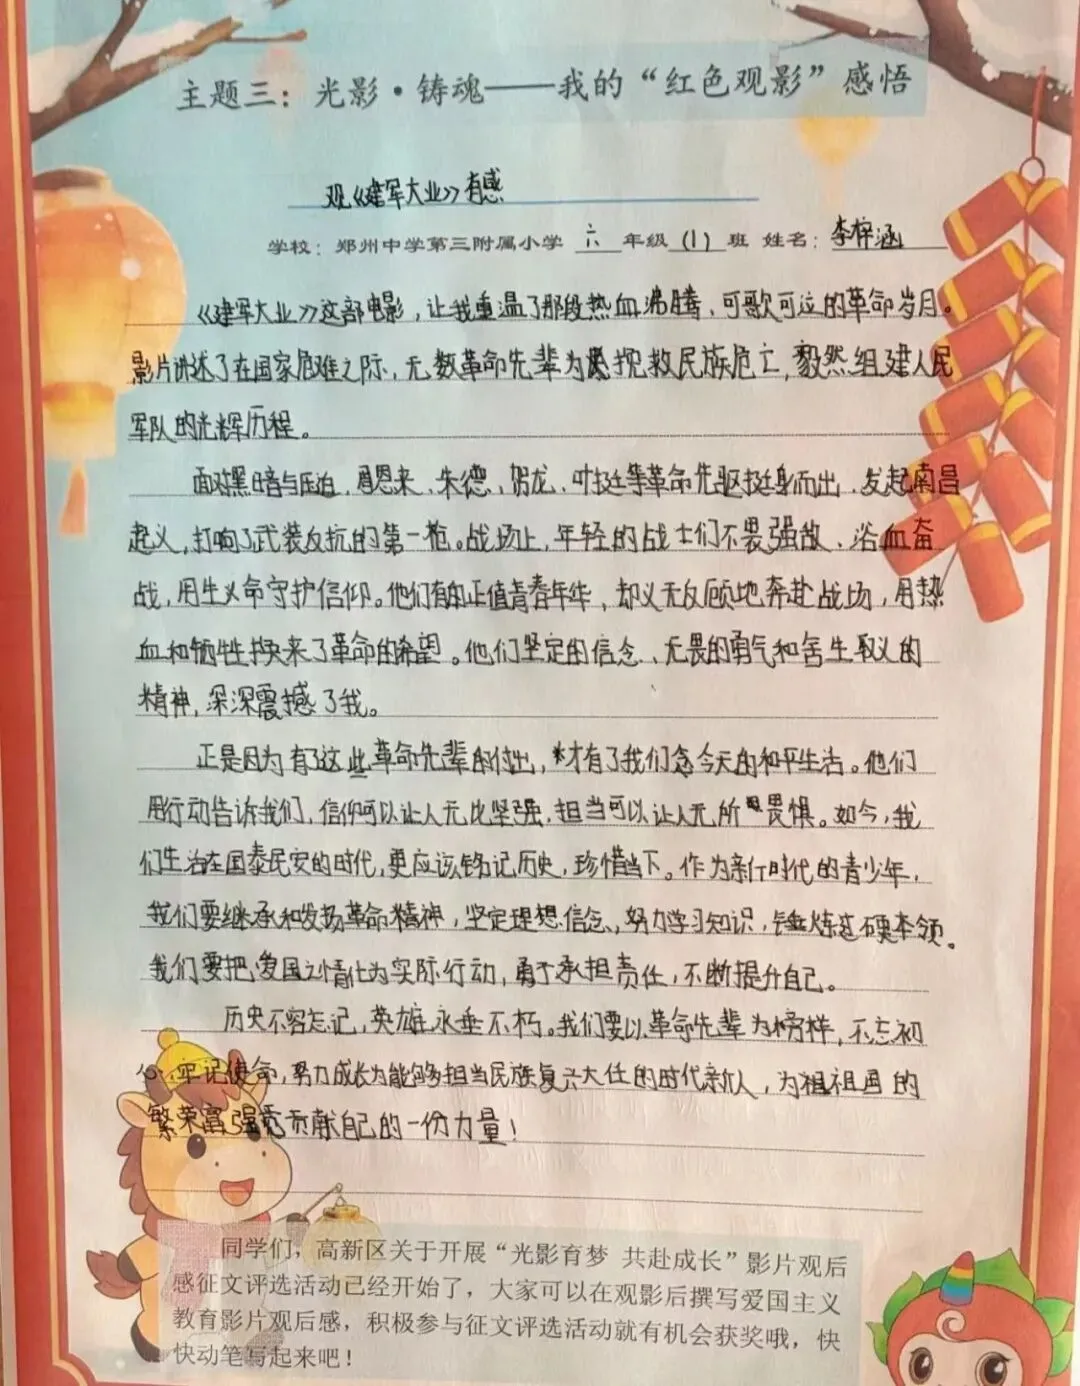 主题三：光影·铸魂——我的“红色观影”感悟
观《建军大业》有感
学校：郑州中学第三附属小学 六 年级 (1) 班 姓名：李梓涵
《建军大业》这部电影，让我重温了那段热血沸腾、可歌可泣的革命岁月。
影片讲述了在国家危难之际，无数革命先辈为挽救民族危亡，毅然组建人民
军队的光辉历程。
面对黑暗与压迫，周恩来、朱德、贺龙、叶挺等革命先驱挺身而出，发起南昌
起义，打响了武装反抗的第一枪。战场上，年轻的战士们不畏强敌、浴血奋
战，用生义命守护信仰。他们有的正值青春年华，却义无反顾地奔赴战场，用热
血和牺牲换来了革命的希望。他们坚定的信念、无畏的勇气和舍生取义的
精神，深深震撼了我。
正是因为有了这些革命先辈的付出，才有了我们今天的和平生活。他们
用行动告诉我们，信仰可以让人无比坚强，担当可以让人无所畏惧。如今，我
们生活在国泰民安的时代，更应该铭记历史，珍惜当下。作为新时代的青少年，
我们要继承和发扬革命精神，坚定理想信念、努力学习知识，锤炼过硬本领。
我们要把爱国之情化为实际行动，勇于承担责任，不断提升自己。
历史不容忘记，英雄永垂不朽。我们要以革命先辈为榜样，不忘初
心，牢记使命，努力成长为能够担当民族复兴大任的时代新人，为祖祖国的
繁荣富强贡献自己的一份力量！
同学们，高新区关于开展“光影育梦 共赴成长”影片观后
感征文评选活动已经开始了，大家可以在观影后撰写爱国主义
教育影片观后感，积极参与征文评选活动就有机会获奖哦，快
快动笔写起来吧！